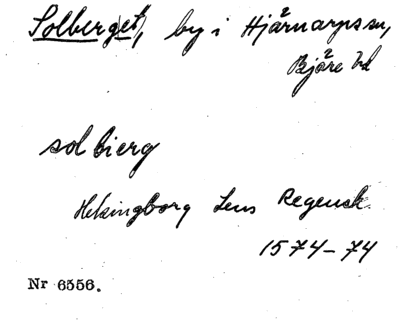 Solberget, by i Hjärnarps sn,
Bjäre hd
solbierg
Helsingborg Lens Regensk.
1574-74
Nr 6556.